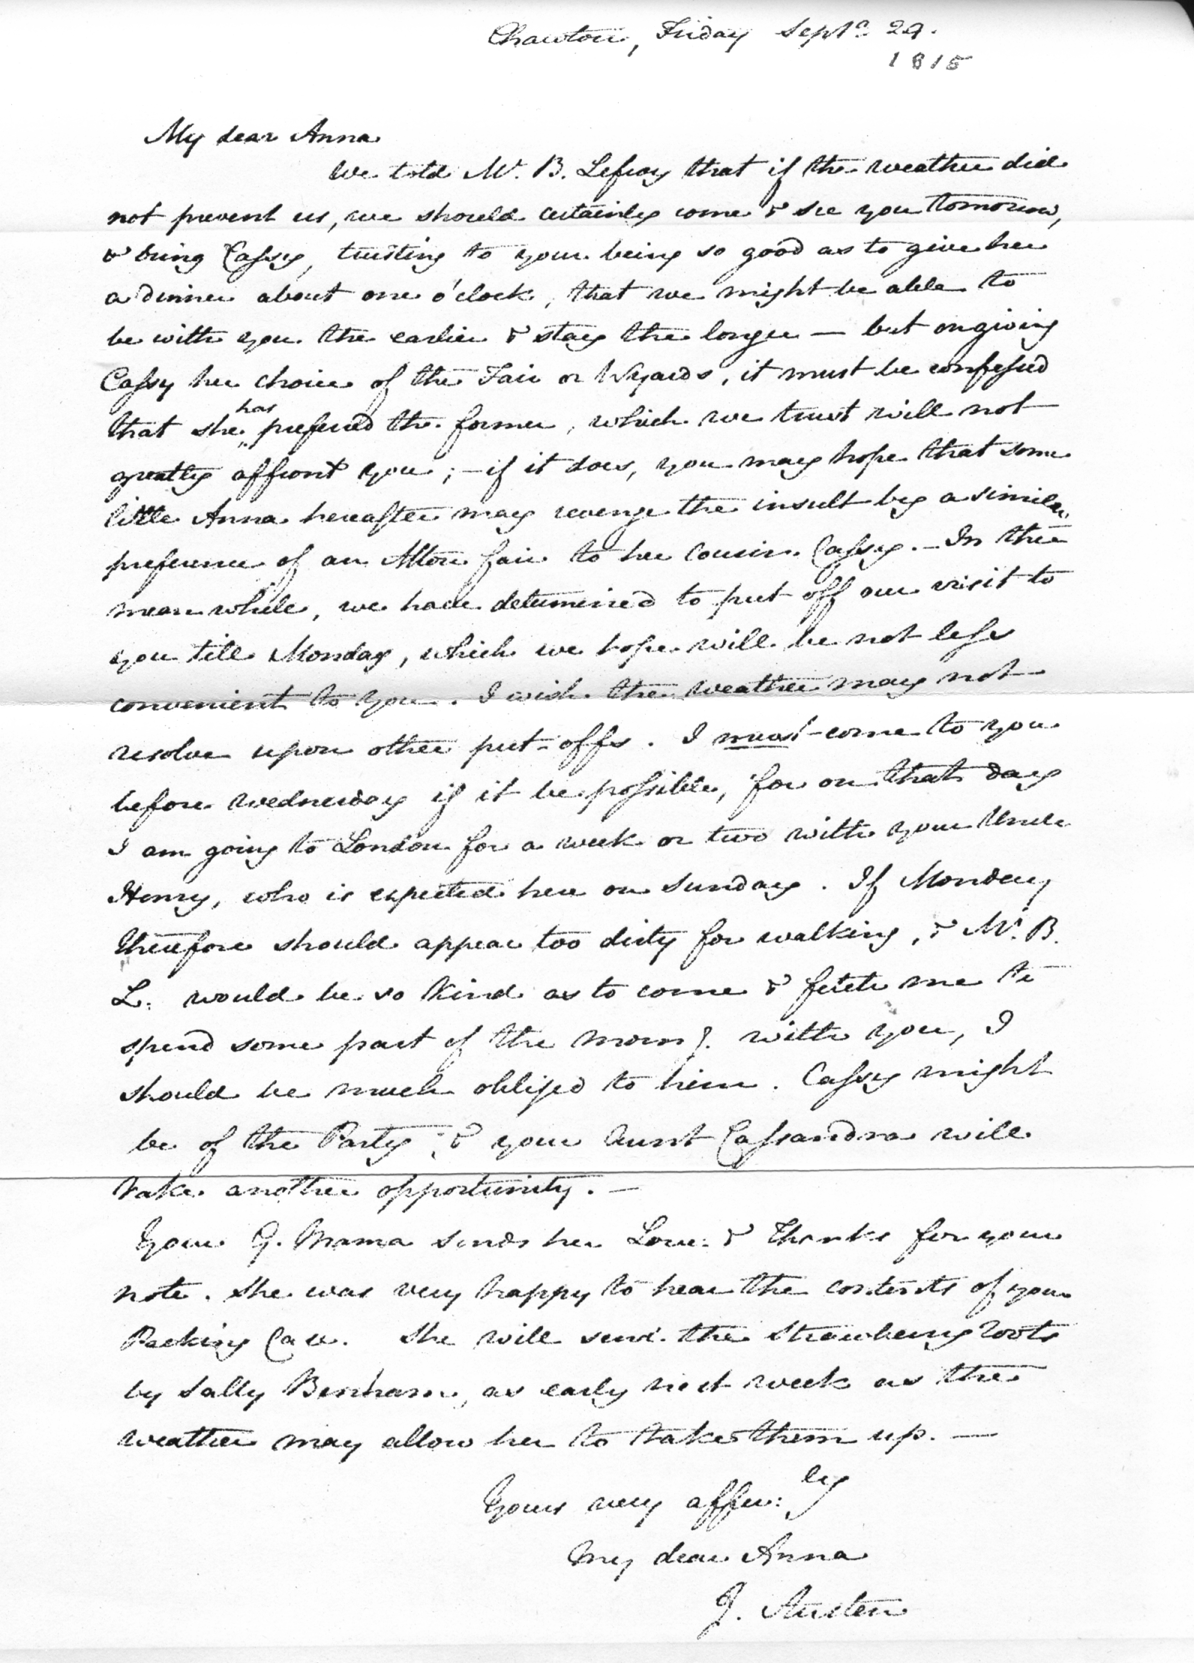 Chawton, Friday Septr. 29.
1815
My dear Anna
We told Mr. B. Lefroy that if the weather did
not prevent us, we should certainly come & see you tomorrow,
& bring Cassy, trusting to your being so good as to give her
a dinner about one o'clock, that we might be able to
be with you the earlier & stay the longer — but on giving
Cassy her choice of the Fair or Wyards, it must be confessed
that she has prefered the former, which we trust will not
greatly affront you; — if it does, you may hope that some
little Anna hereafter may revenge the insult by a similar
preference of an Alton fair to her Cousin Cassy. — In the
mean while, we have determined to put off our visit to
you till Monday, which we hope will be not less
convenient to you. I wish the weather may not
resolve upon other put-offs. I must come to you
before Wednesday if it be possible, for on that day
I am going to London for a week or two with your Uncle
Henry, who is expected here on Sunday. If Monday
therefore should appear too dirty for walking, & Mr. B.
L. would be so kind as to come & fetch me to
spend some part of the morng. with you, I
should be much obliged to him. Cassy might
be of the Party, & your Aunt Cassandra will
take another opportunity. —
Your G. Mama sends her Love & Thanks for your
note. She was very happy to hear the contents of your
Packing Case. She will send the Strawberry roots
by Sally Benham, as early next week as the
weather may allow her to take them up. —
Yours very affec:ly
My dear Anna
J. Austen